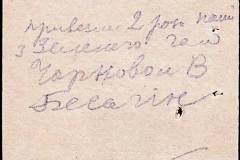 привезли 2 рою нашi
з Зеленого Гаю
Чорновол В
Бесагiн